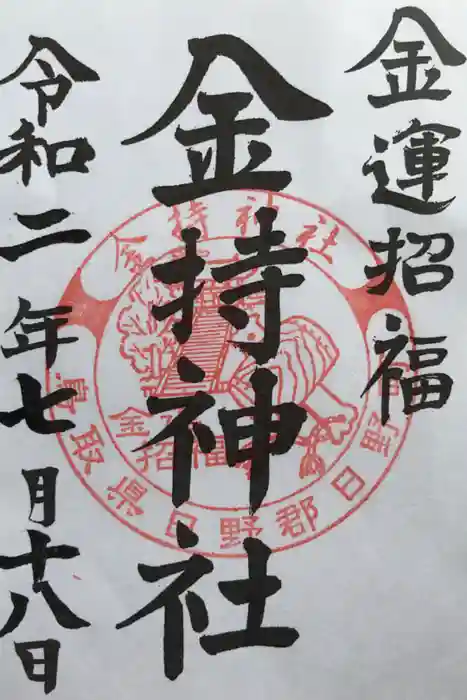 金運招福
金持神社
令和二年七月十八日
金持神社
金運招福
鳥取県日野郡日野